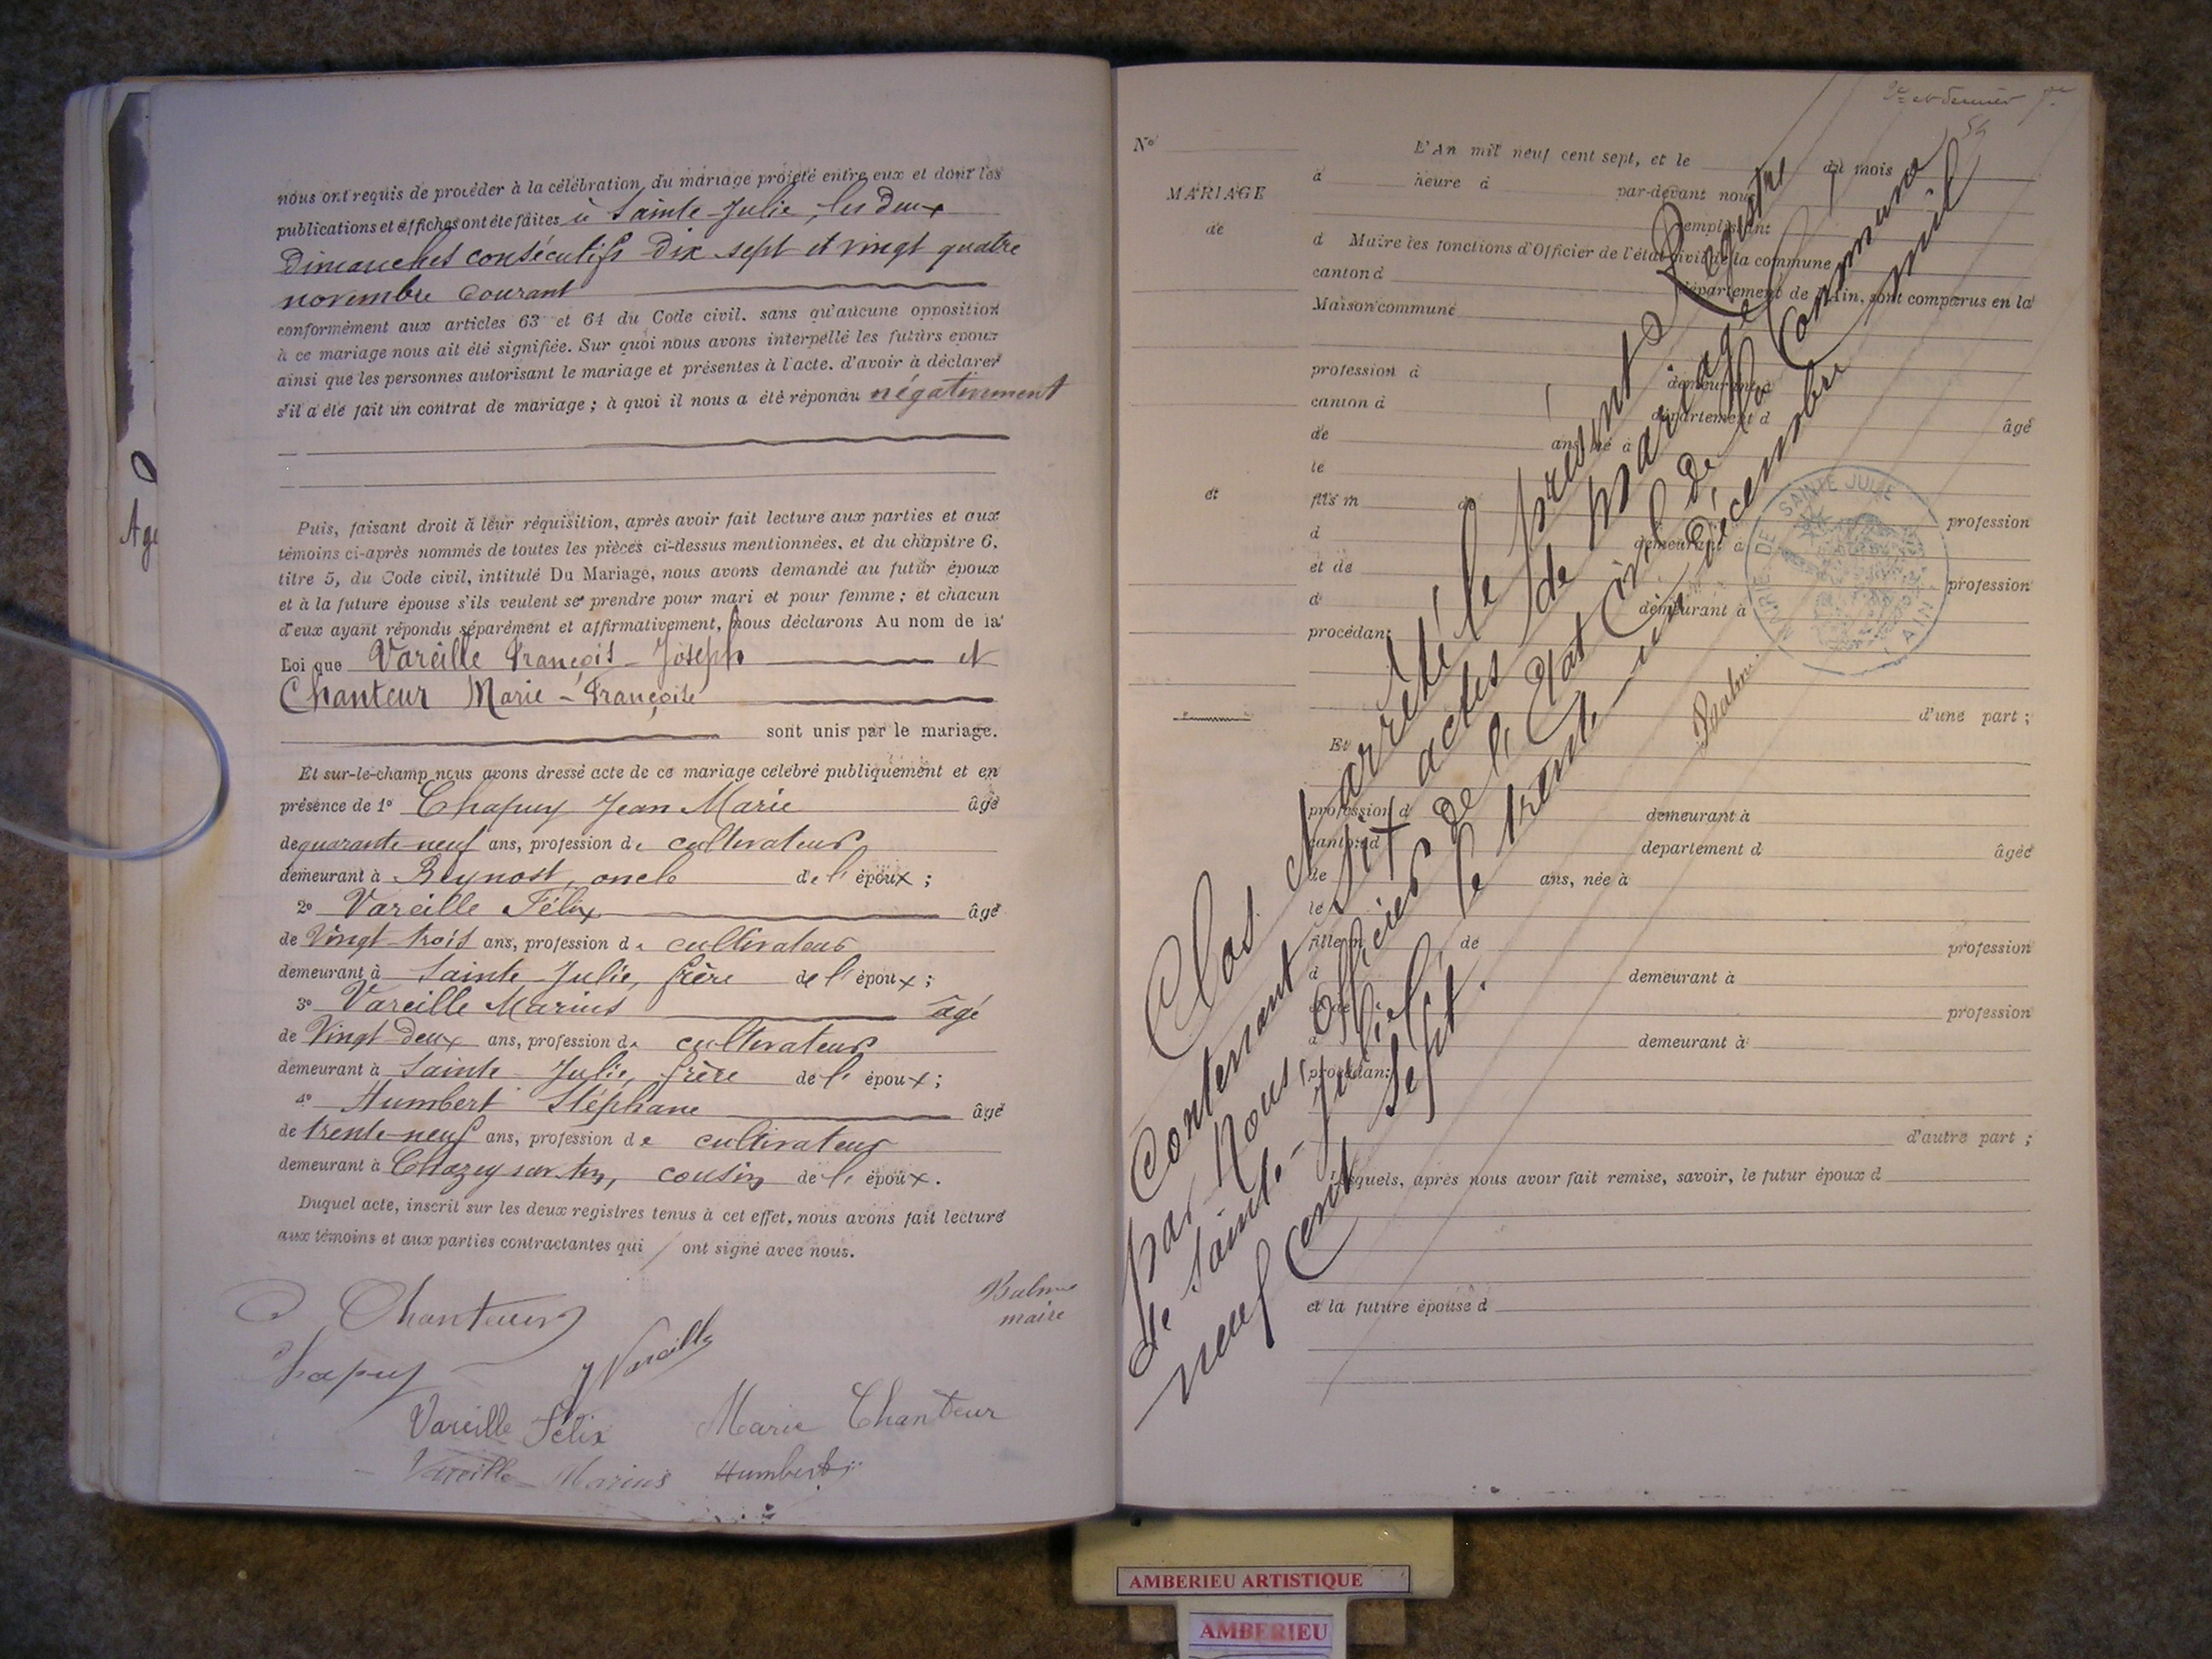 nous ont requis de procéder à la célébration du mariage projeté entre eux et dont les
publications et affiches ont été faites à Sainte-Julie, les deux
Dimanches consécutifs Dix sept et vingt quatre
novembre courant
conformément aux articles 63 et 64 du Code civil. sans qu'aucune opposition
à ce mariage nous ait été signifiée. Sur quoi nous avons interpellé les futurs epoux
ainsi que les personnes autorisant le mariage et présentes à l'acte. d'avoir à déclarer
s'il a été fait un contrat de mariage ; à quoi il nous a été répondu négativement
Puis, faisant droit à leur réquisition, après avoir fait lecture aux parties et aux
témoins ci-après nommés de toutes les pièces ci-dessus mentionnées, et du chapitre 6,
titre 5, du Code civil, intitulé Du Mariage, nous avons demandé au futur époux
et à la future épouse s'ils veulent se prendre pour mari et pour femme ; et chacun
d'eux ayant répondu séparément et affirmativement, nous déclarons Au nom de la
Loi que Vareille François-Joseph et
Chanteur Marie-Françoise
sont unis par le mariage.
Et sur-le-champ nous avons dressé acte de ce mariage célébré publiquement et en
présence de 1° Chapuy Jean Marie âgé
de quarante-neuf ans, profession de cultivateur
demeurant à Beynost, oncle de l'époux ;
2° Vareille Félix âgé
de Vingt-trois ans, profession de cultivateur
demeurant à Sainte-Julie, frère de l'époux ;
3° Vareille Marius âgé
de Vingt-Deux ans, profession de cultivateur
demeurant à Sainte-Julie, frère de l'époux ;
4° Humbert Stéphane âgé
de trente-neuf ans, profession de cultivateur
demeurant à Chazey sur Ain, cousin de l'époux.
Duquel acte, inscrit sur les deux registres tenus à cet effet, nous avons fait lecture
aux témoins et aux parties contractantes qui ont signé avec nous.
Chanteur
Balme
maire
Chapuy
J Vareille
Vareille Félix
Marie Chanteur
Vareille Marius
Humbert
Age
2e et dernier
54
N°
L'An mil neuf cent sept, et le du mois
à heure à par-devant nous
MARIAGE
de
remplissant
d Maire les fonctions d'Officier de l'état civil de la commune
canton d département de l'Ain, sont comparus en la
Maison commune
profession d demeurant à
canton d département d
de ans né à âgé
le
et
fils m de profession
d demeurant à
et de profession
d demeurant à
procédant
d'une part ;
Et
profession d demeurant à
canton d departement d
de ans, née à âgée
le
fille m de profession
d demeurant à
et de profession
d demeurant à
procédant
d'autre part ;
Lesquels, après nous avoir fait remise, savoir, le futur époux d
et la future épouse d
Clos et arrêté le présent Registre
contenant sept actes de mariage
par Nous, Officier de l'Etat Civil de la Commune
de Sainte-Julie, le trente-un Décembre mil
neuf cent sept.
Balme
MAIRIE DE SAINTE JULIE
AIN
AMBERIEU ARTISTIQUE
AMBERIEU